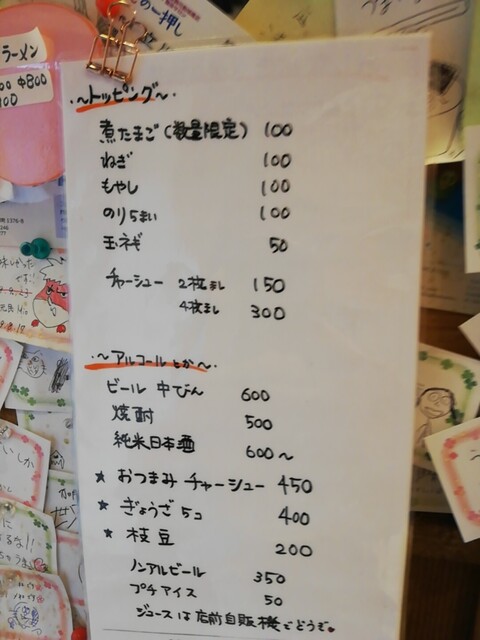 の一押し
ラーメン
00 中800
900
～トッピング～
煮たまご(数量限定) 100
ねぎ 100
もやし 100
のり5まい 100
玉ネギ 50
チャーシュー 2枚まし 150
4枚まし 300
～アルコールとか～
ビール 中びん 600
焼酎 500
純米日本酒 600～
★ おつまみチャーシュー 450
★ ぎょうざ 5コ 400
★ 枝豆 200
ノンアルビール 350
プチアイス 50
ジュースは店前自販機でどうぞ♥